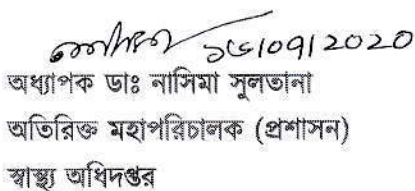 ১৬/০৭/2020
অধ্যাপক ডাঃ নাসিমা সুলতানা
অতিরিক্ত মহাপরিচালক (প্রশাসন)
স্বাস্থ্য অধিদপ্তর